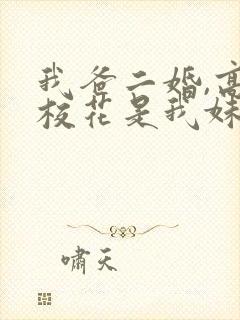 我爸二婚,高
校花是我妹
啸天